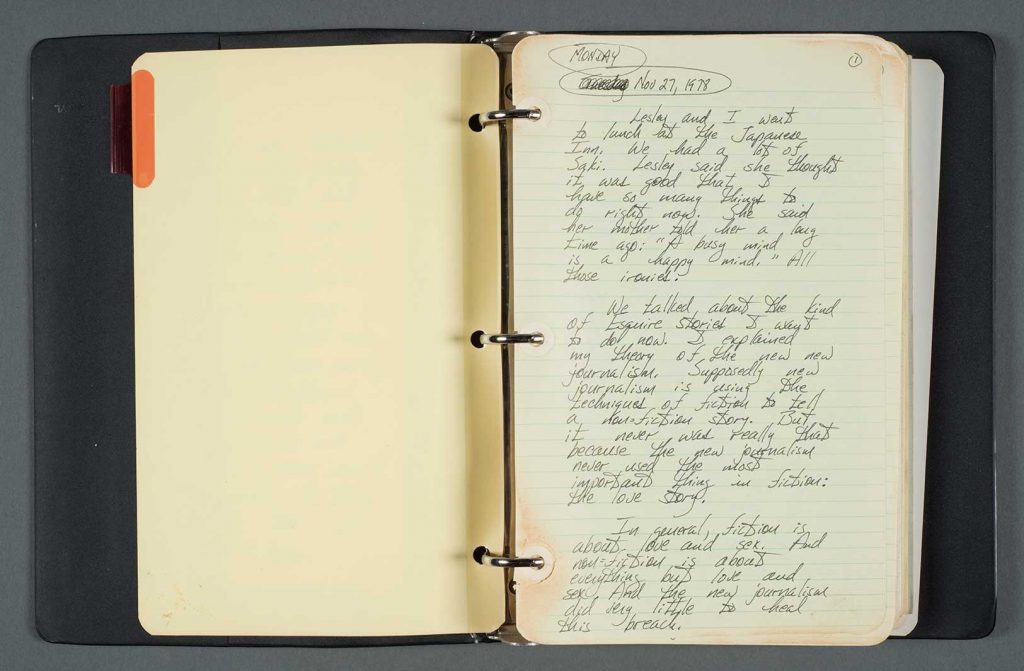 MONDAY
1
Nov 27, 1978
Lesley and I went
to lunch at the Japanese
Inn. We had a lot of
Saki. Lesley said she thought
it was good that I
have so many things to
do right now. She said
her mother told her a long
time ago: "A busy mind
is a happy mind." All
those ironies.
We talked about the kind
of Esquire stories I want
to do now. I explained
my theory of the new new
journalism. Supposedly new
journalism is using the
techniques of fiction to tell
a non-fiction story. But
it never was really that
because the new journalism
never used the most
important thing in fiction:
the love story.
In general, fiction is
about love and sex. And
non-fiction is about
everything but love and
sex. And the new journalism
did very little to heal
this breach.